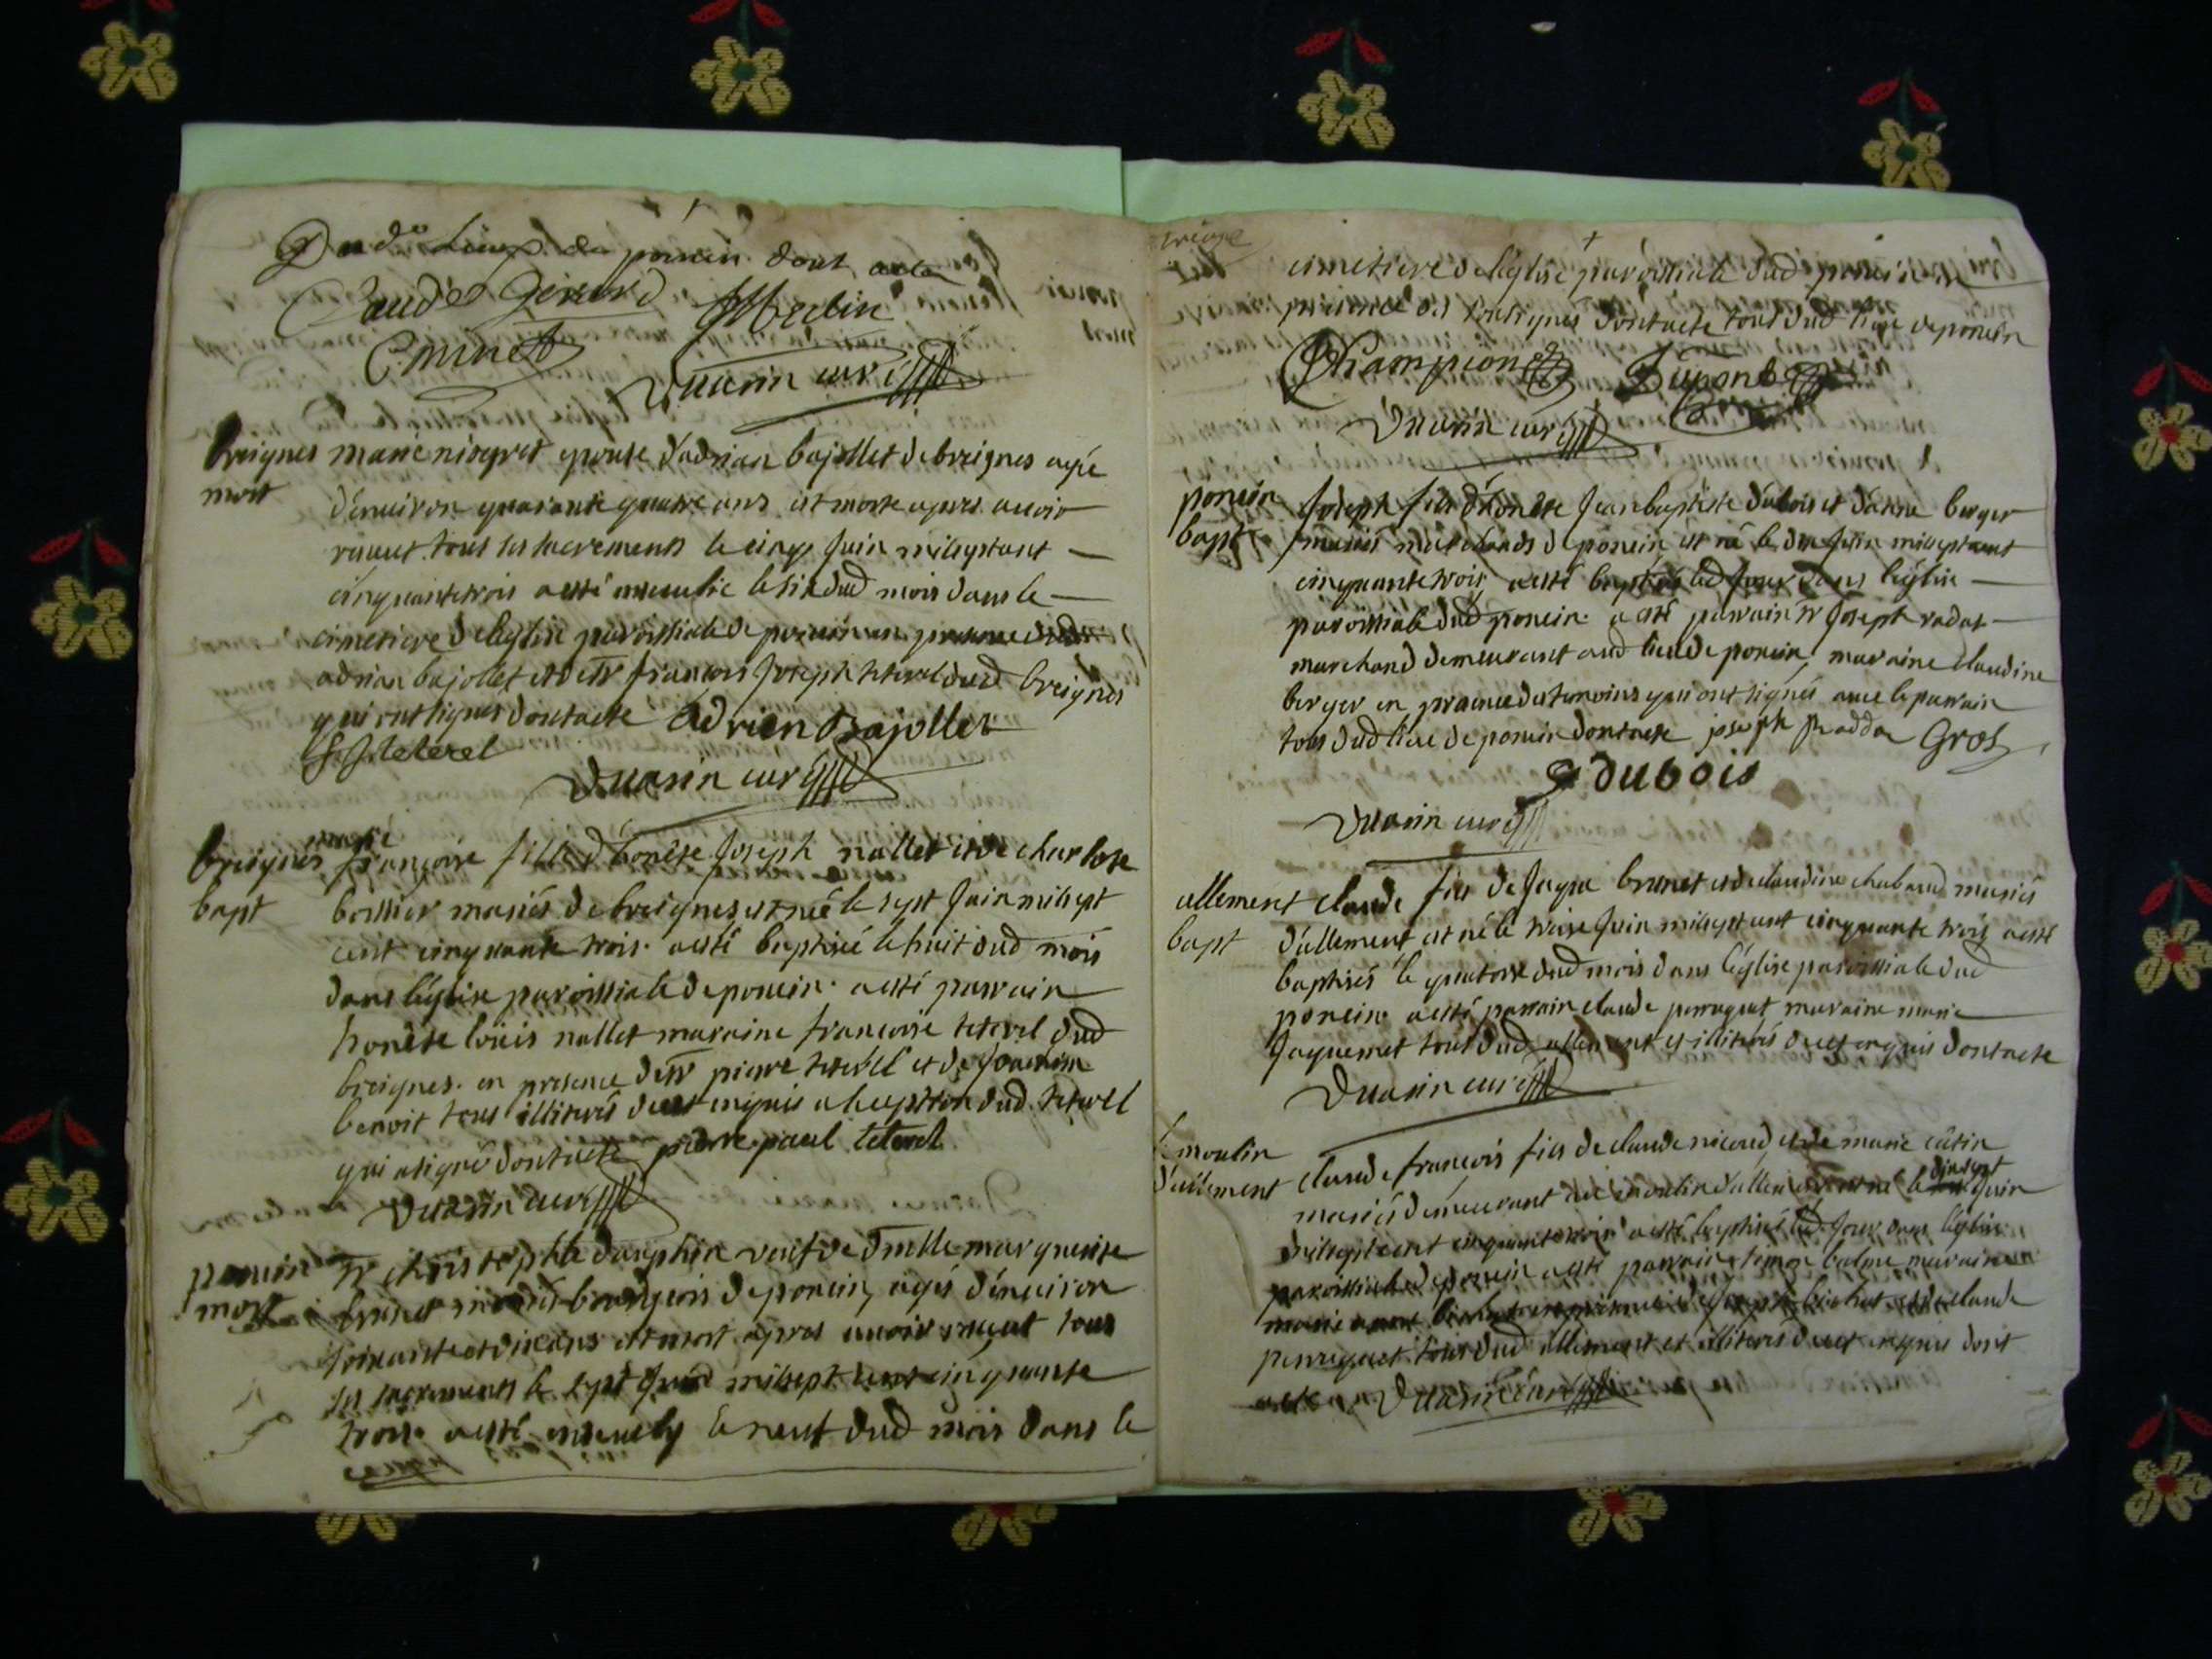 dud. lieux de poncin dont acte
Claude Girard Merlin
Cminet
Duarin curé
breignes marie nisegret epouse d'adrian bajollet de breignes agée
mort d'enuiron quarante quatre ans est morte apres auoir
receut tous ses sacrements le cinq Juin milseptcent
cinquantetrois a esté enseuelie le six dud mois dans le
cimetiere de l'eglise paroissiale de poncin en presence dud
adrian bajollet et de sr francois Joseph teterel dud breignes
qui ont signés dont acte Adrien Bajollet
f J teterel
Duarin curé
marie
breignes françoise fille d'honete Joseph nallet et de charlote
bapt boissier mariés de breignes est née le sept Juin milsept
cent cinquante trois. a esté baptisée le huit dud mois
dans l'eglise paroissiale de poncin. a esté parrain
honête loüis nallet maraine francoise teterel dud
breignes. en presence de sr pierre teterel et de Joachim
benoit tous illiterés de ce enquis a l'exeption dud. teterel
qui a signé dont acte pierre paul teterel
Duarin curé
poncin sr christophle dauphin veuf de dmlle marguerite
mort brunet bourgeois de poncin, agés d'enuiron
soixante et dix ans est mort apres auoir reçeut tous
ses sacrements le sept Juin milsept cent cinquante
trois. a esté enseuely le neuf dud mois dans le
cimetiere de l'église paroissiale dud poncin en
presence des soussignés dont acte tous dud lieu de poncin
Champion Dupont
Duarin curé
poncin Joseph fils d'honête Jean baptiste dubois et d'anne berger
bapt mariés marchands de poncin est né le dix Juin milseptcent
cinquantetrois, a esté baptisés led jour dans l'église
paroissiale dud poncin. a esté parrain sr Joseph radat
marchand demeurant aud lieu de poncin, maraine claudine
berger en presence des temoins qui ont signés auec le parrain
tous dud lieu de poncin dont acte joseph Radda Gros
dubois
Duarin curé
allement claude fils de Jaque brunet et de claudine chaband mariés
bapt d'allement est né le treize Juin milseptcent cinquante trois a esté
baptisés le quatorse dud mois dans l'église paroissiale dud
poncin. a esté parrain claude perruquet maraine marie
Jaquemet tous dud allement et illiterés de ce enquis dont acte
Duarin curé
moulin claude françois fils de claude nicoud et de marie cátin
d'allement mariés demeurant au moulin d'allement est né le dixsept Juin
milseptcent cinquantetrois a esté baptisé led Jour dans l'eglise
paroissiale de poncin a esté parrain simon balme maraine
marie en presence de Joseph et de claude
perruquet tous dud allement et illiterés de ce enquis dont
acte Duarin curé